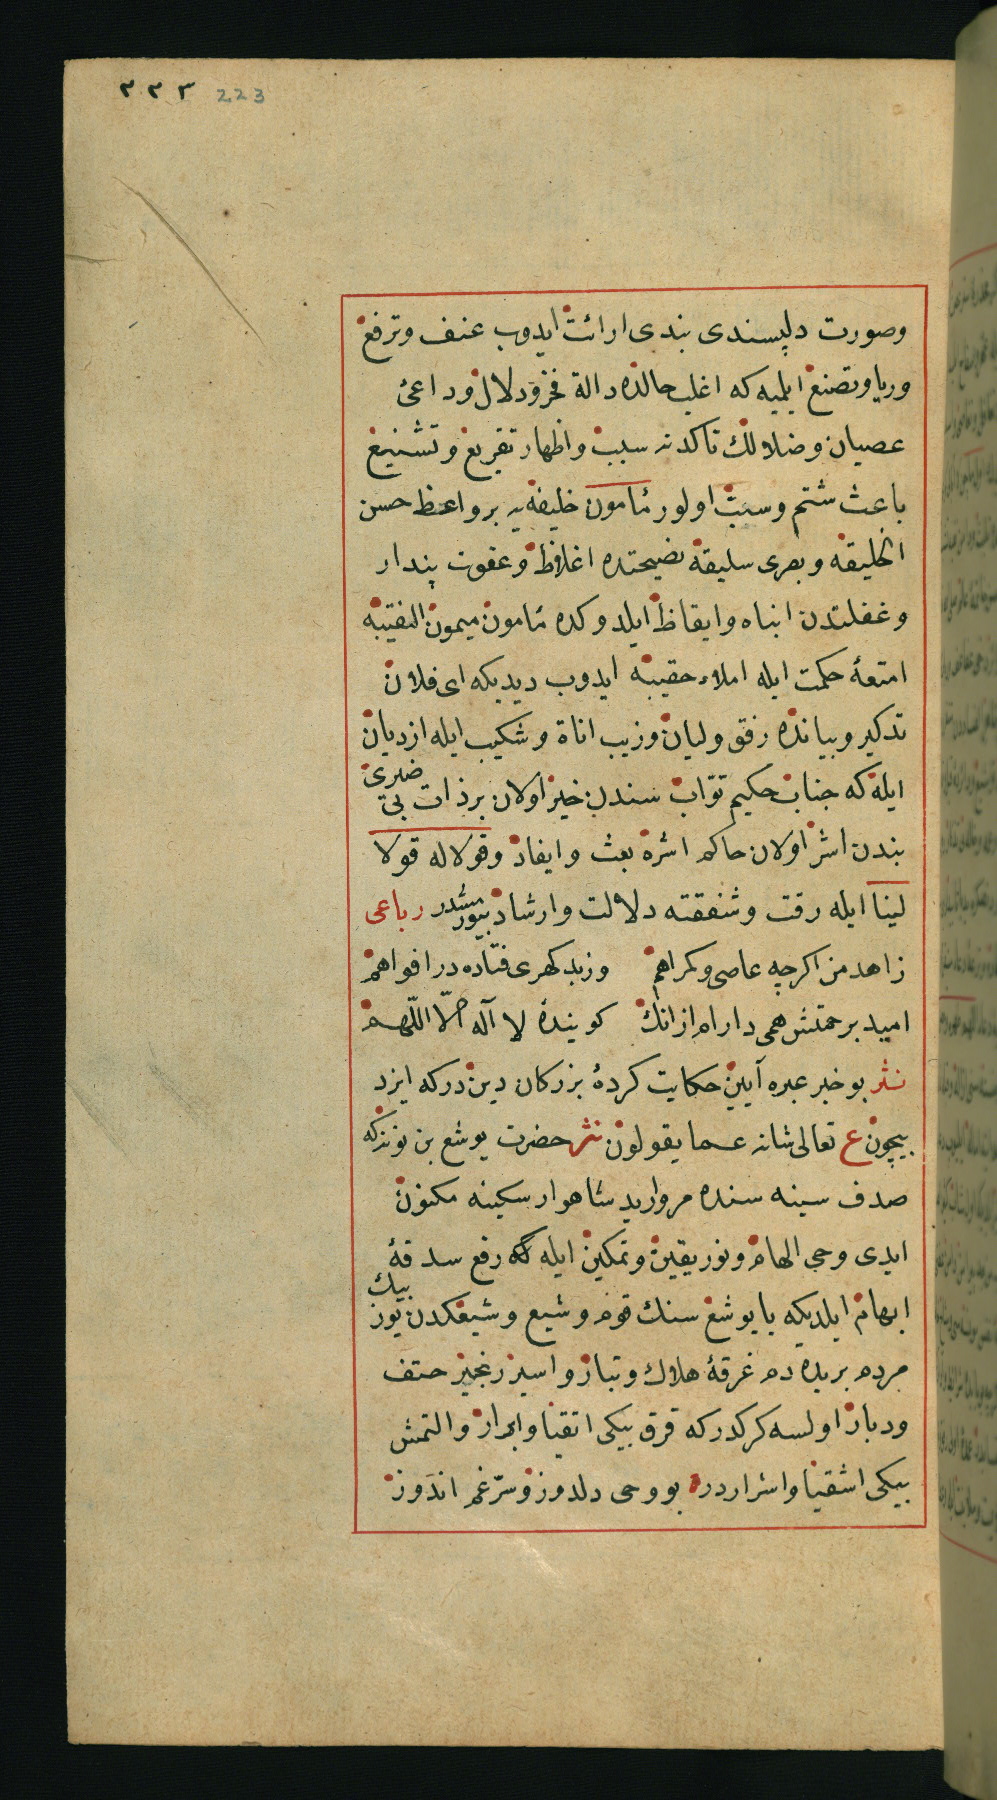 ۲۲۳ 223
وصورت دلپسندی بندی ارائت ایدوب عنف وترفع
وریا وتصنع ایلمیه که اغلب حالده دالهٔ فخر ودلال وداعئ
عصیان وضلالك تاکدنه سبب واظهار تقریع وتشنیع
باعث شتم وسب اولور مأمون خلیفه یه بر واعظ حسن
الخلیقه وبصری سلیقه نصیحتده اغلاظ وعفوت پندار
وغفلتدن انباه وایقاظ ایلدوکده مأمون میمون النقیبه
امتعهٔ حکمت ایله املاء حقیبه ایدوب دیدیکه ای فلان
تذکیر وبیانده رفق ولیان وزیب اناة وشکیب ایله ازدیان
ایله که جناب حکیم توّاب سندن خیر اولان بر ذات بی ضیری
بندن اشر اولان حاکم اشره بعث وایفاد وقولا له قولا
لینا ایله رقت وشفقته دلالت وارشاد بیورمشدر رباعی
زاهد من اکرچه عاصی وکمراهم وزبد کهری فتاده در افواهم
امید برحمتش همی دارم از انك کویندهٔ لا آله الّا اللّهم
نثر بو خبر عبره آیین حکایت کردهٔ بزرکان دین درکه ایزد
بیچون ع تعالی شانه عما یقولون نثر حضرت یوشع بن نونه که
صدف سینه سنده مروارید شاهوار سکینه مکنون
ایدی وحی الهام ونور یقین وتمکین ایله که رفع سدفهٔ
ابهام ایلدیکه یا یوشع سنك قوم وشیع وشیعکدن یوز بیك
مردم بریده دم غرقهٔ هلاك وتبار واسیر زنجیر حتف
ودبار اولسه کرکدر که قرق بیکی اتقیا وابرار والتمش
بیکی اشقیا واشراردر بو وحی دلدوز وسرّ غم اندوز